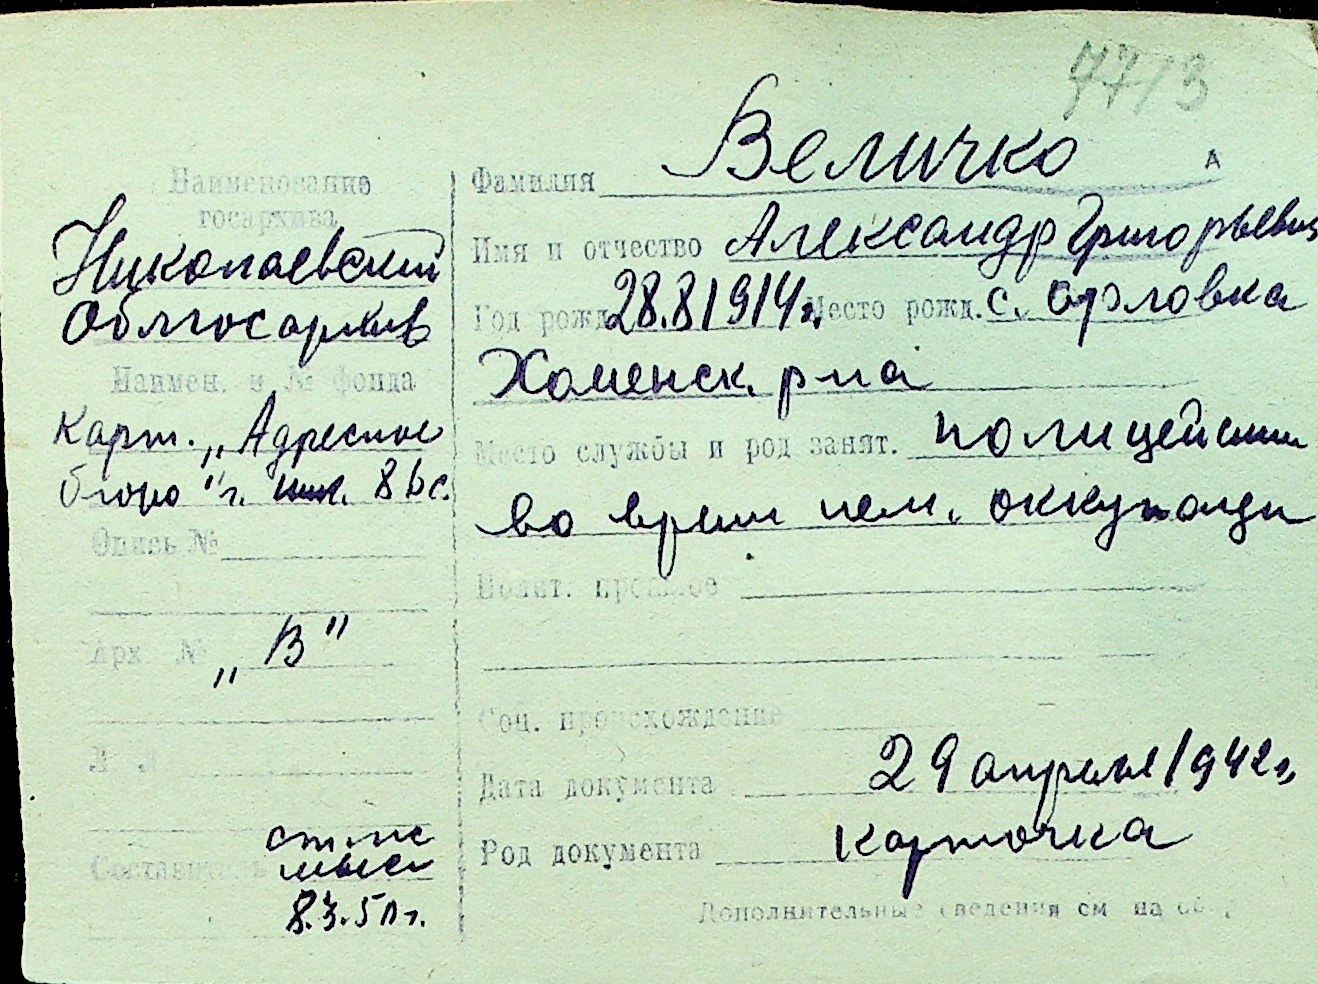 77/3
Наименование
госархива
Николаевский
Облгосархив
Наимен. и № фонда
Карт. „Адресное
бюро" г.
Опись №
Арх. № „В"
Составитель
8.3.50 г.
Фамилия Величко А
Имя и отчество Александр Григорьевич
Год рожд. 28.8.1914 г. Место рожд. с. Орловка
Хоменск. р-на
Место службы и род занят. полицейским
во время нем. оккупации
Полит. прошлое
Соц. происхождение
Дата документа 29 апреля 1942 г.
Род документа карточка
Дополнительные сведения см на об